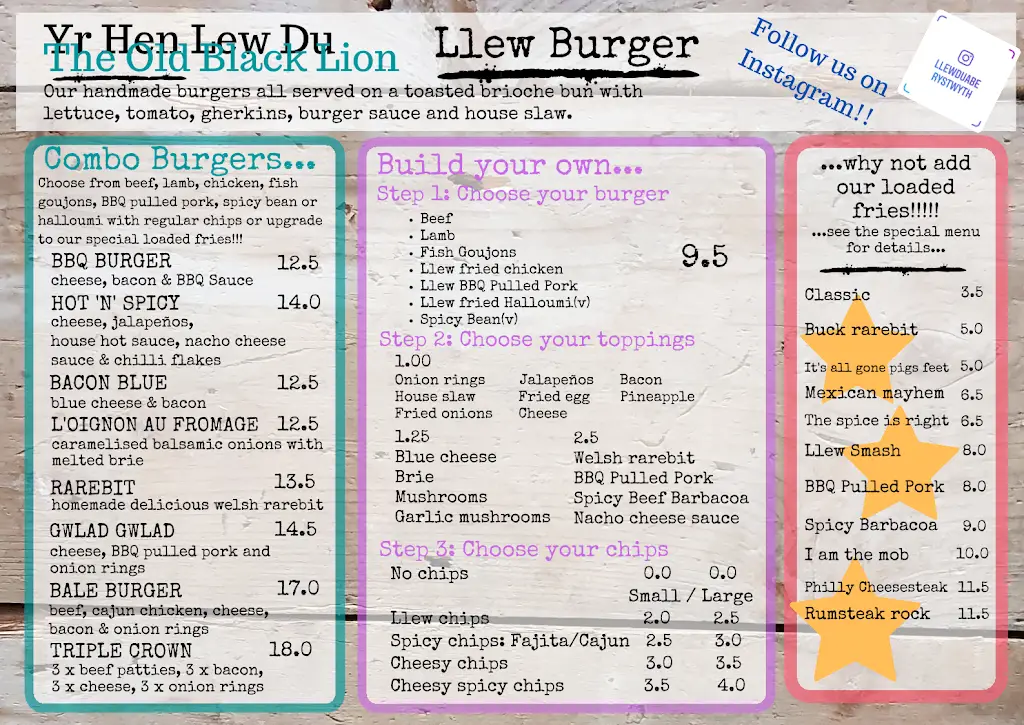 Yr Hen Lew Du
The Old Black Lion
Llew Burger
Follow us on
Instagram!!
LLEWDUABE
RYSTWYTH
Our handmade burgers all served on a toasted brioche bun with
lettuce, tomato, gherkins, burger sauce and house slaw.
Combo Burgers...
Choose from beef, lamb, chicken, fish
goujons, BBQ pulled pork, spicy bean or
halloumi with regular chips or upgrade
to our special loaded fries!!!
BBQ BURGER 12.5
cheese, bacon & BBQ Sauce
HOT 'N' SPICY 14.0
cheese, jalapeños,
house hot sauce, nacho cheese
sauce & chilli flakes
BACON BLUE 12.5
blue cheese & bacon
L'OIGNON AU FROMAGE 12.5
caramelised balsamic onions with
melted brie
RAREBIT 13.5
homemade delicious welsh rarebit
GWLAD GWLAD 14.5
cheese, BBQ pulled pork and
onion rings
BALE BURGER 17.0
beef, cajun chicken, cheese,
bacon & onion rings
TRIPLE CROWN 18.0
3 x beef patties, 3 x bacon,
3 x cheese, 3 x onion rings
Build your own...
Step 1: Choose your burger
• Beef
• Lamb
• Fish Goujons
• Llew fried chicken
• Llew BBQ Pulled Pork
• Llew fried Halloumi(v)
• Spicy Bean(v)
9.5
Step 2: Choose your toppings
1.00
Onion rings Jalapeños Bacon
House slaw Fried egg Pineapple
Fried onions Cheese
1.25 2.5
Blue cheese Welsh rarebit
Brie BBQ Pulled Pork
Mushrooms Spicy Beef Barbacoa
Garlic mushrooms Nacho cheese sauce
Step 3: Choose your chips
No chips 0.0 0.0
Small / Large
Llew chips 2.0 2.5
Spicy chips: Fajita/Cajun 2.5 3.0
Cheesy chips 3.0 3.5
Cheesy spicy chips 3.5 4.0
...why not add
our loaded
fries!!!!!
...see the special menu
for details...
Classic 3.5
Buck rarebit 5.0
It's all gone pigs feet 5.0
Mexican mayhem 6.5
The spice is right 6.5
Llew Smash 8.0
BBQ Pulled Pork 8.0
Spicy Barbacoa 9.0
I am the mob 10.0
Philly Cheesesteak 11.5
Rumsteak rock 11.5